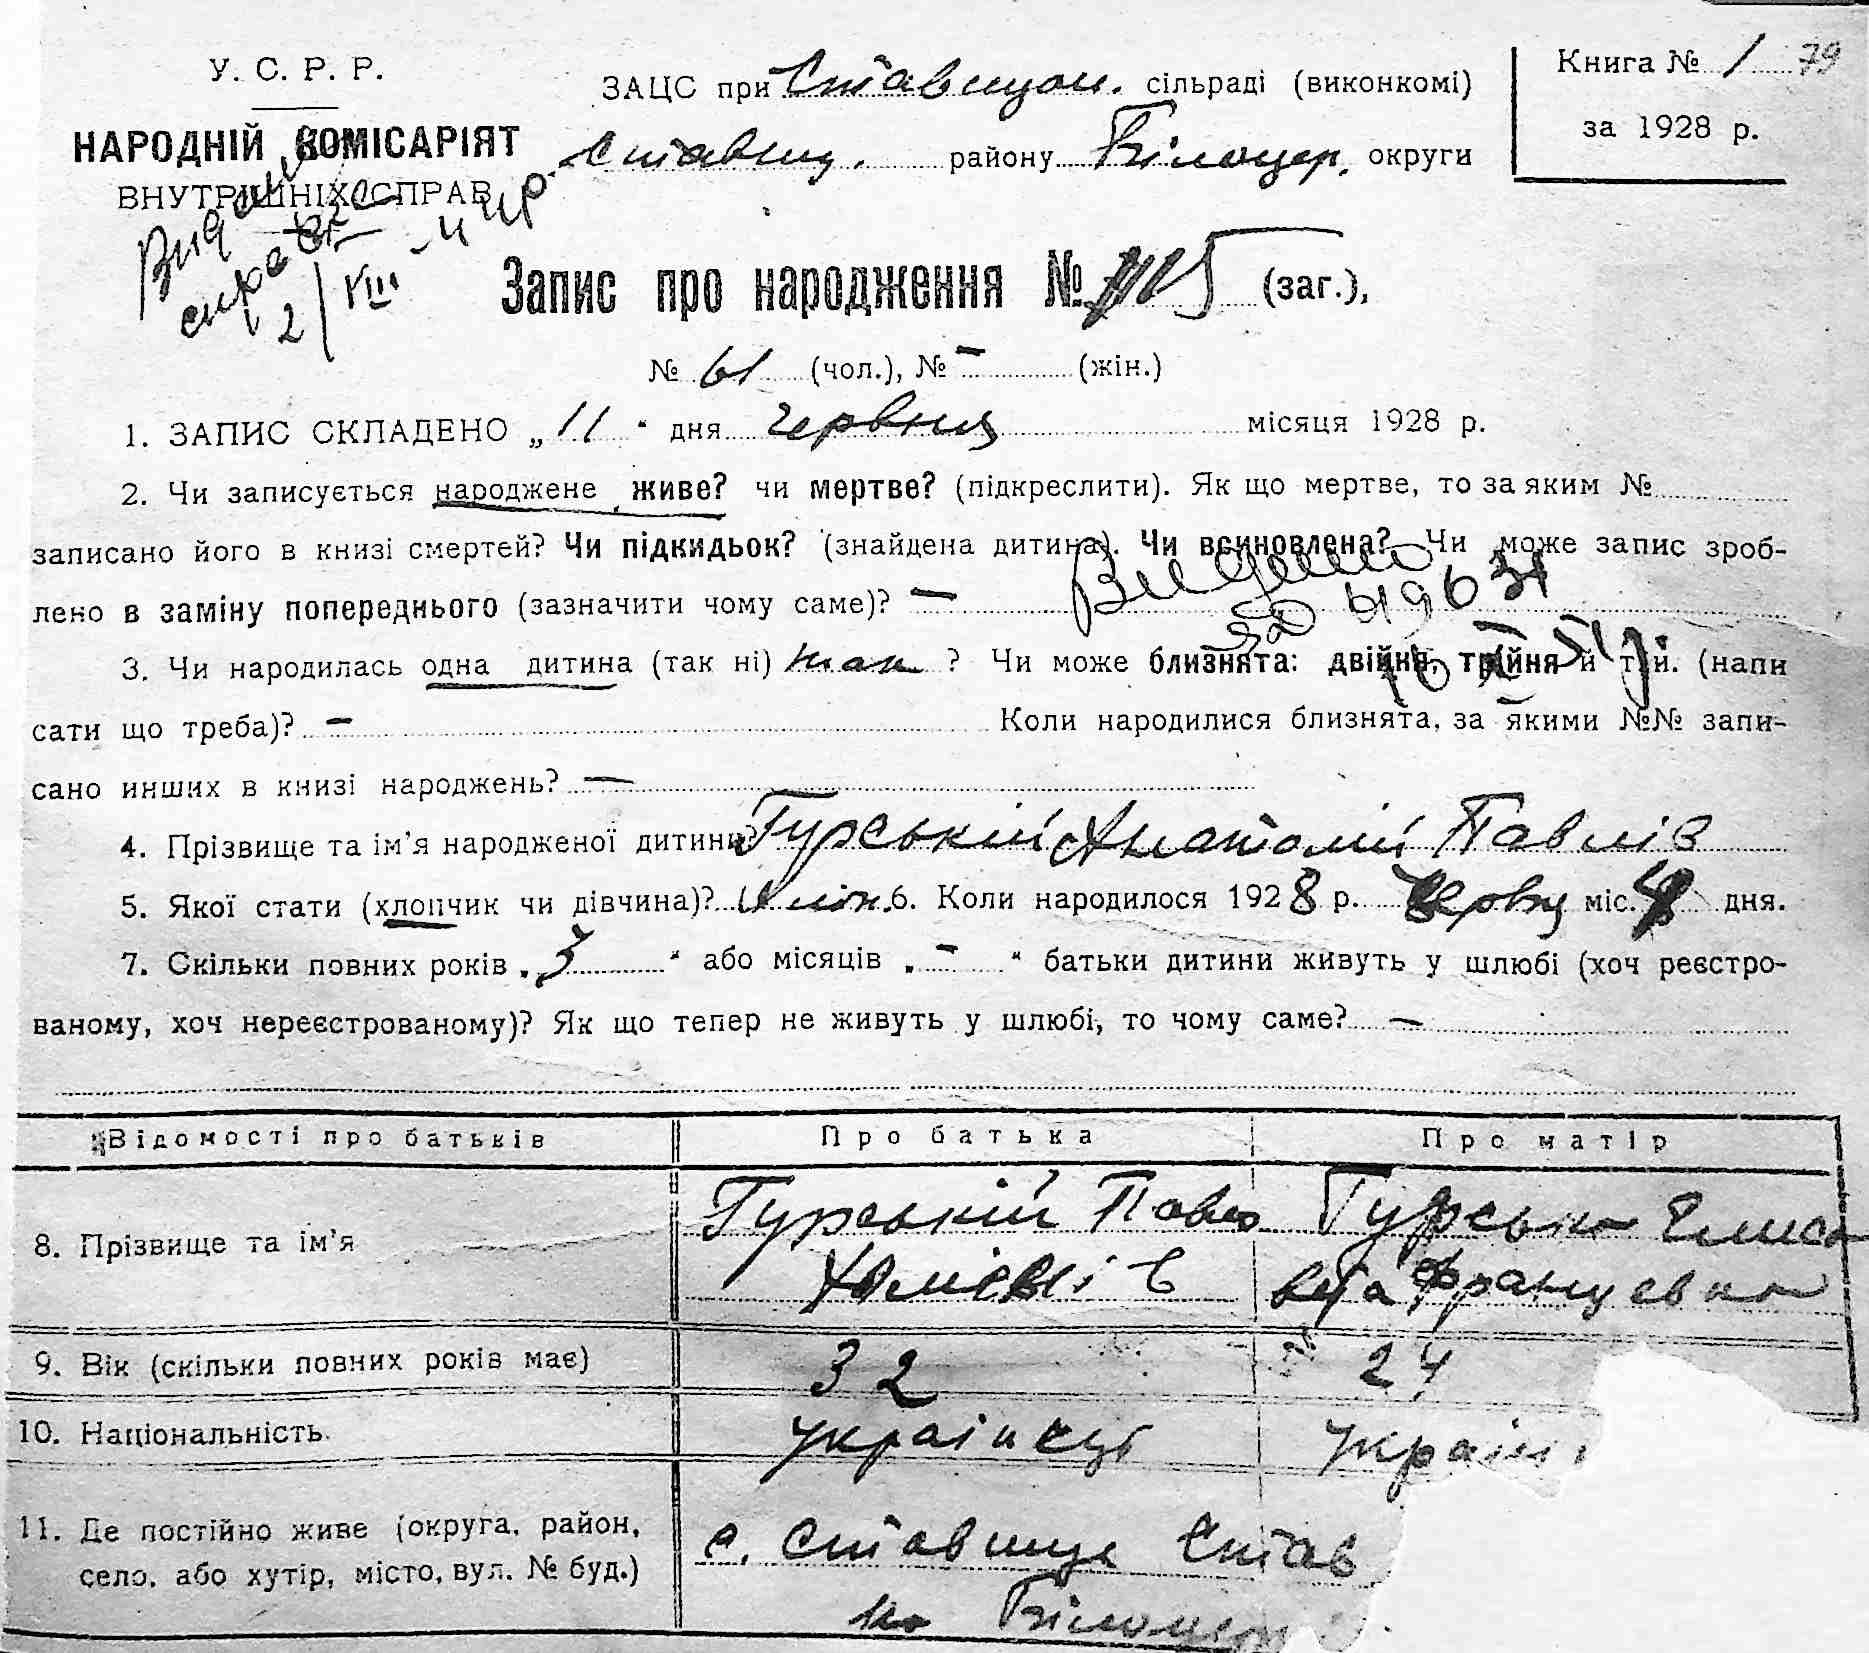 У. С. Р. Р.
НАРОДНІЙ КОМІСАРІЯТ
ВНУТРІШНІХ СПРАВ
ЗАЦС при Ставищан. сільраді (виконкомі)
Ставищ. району Білоцер. округи
Книга № 1 79
за 1928 р.
2/VIII
Запис про народження № (заг.),
№ 61 (чол.), № – (жін.)
1. ЗАПИС СКЛАДЕНО „11“ дня червня місяця 1928 р.
2. Чи записується народжене живе? чи мертве? (підкреслити). Як що мертве, то за яким №
записано його в книзі смертей? Чи підкидьок? (знайдена дитина). Чи всиновлена? Чи може запис зроб-
лено в заміну попереднього (зазначити чому саме)? —
Видано
3. Чи народилась одна дитина (так ні) так ? Чи може близнята: двійня, трійня й т. и. (напи
сати що треба)? – Коли народилися близнята, за якими №№ запи-
сано инших в книзі народжень? —
4. Прізвище та ім'я народженої дитини? Гурській Анатолій Павлів
5. Якої стати (хлопчик чи дівчина)? 6. Коли народилося 1928 р. Червц міс. дня.
7. Скільки повних років „3“ або місяців „–“ батьки дитини живуть у шлюбі (хоч реєстро-
ваному, хоч нереєстрованому)? Як що тепер не живуть у шлюбі, то чому саме? —
Відомості про батьків Про батька Про матір
8. Прізвище та ім'я Гурській Павло Гурська Єлиса
вета Францевна
9. Вік (скільки повних років має) 32 24
10. Національність українець україн
11. Де постійно живе (округа, район, с. Ставище Став
село, або хутір, місто, вул. № буд.) Білоцер